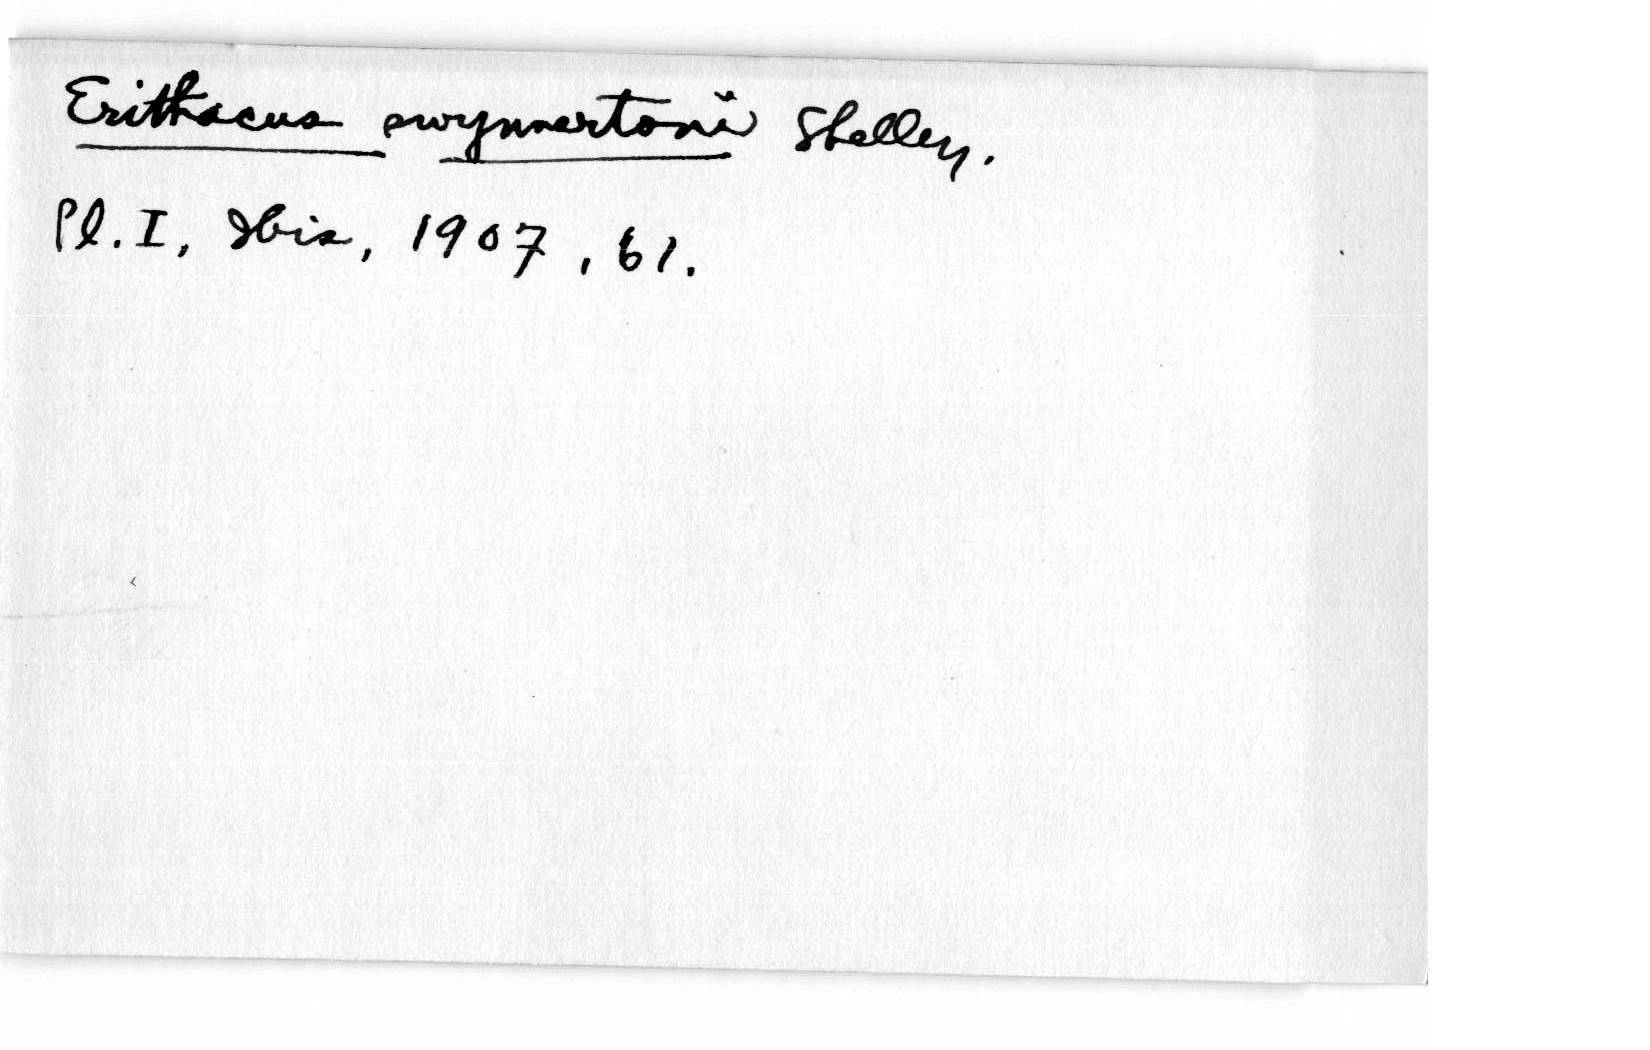 Erithacus swynnertoni Shelley.
Pl. I, Ibis, 1907, 61.